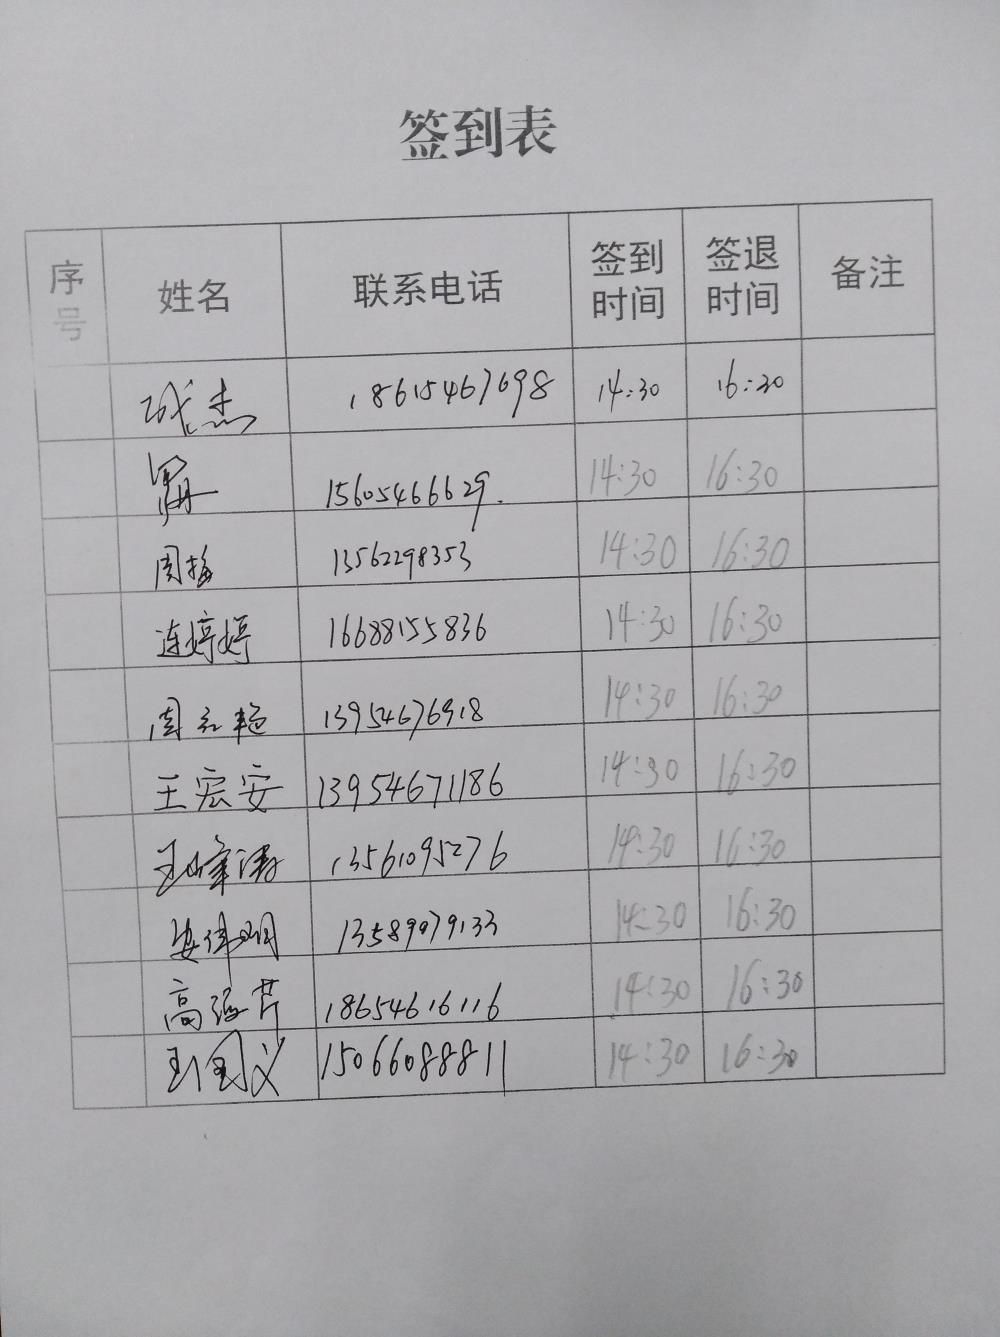 签到表
序号 姓名 联系电话 签到时间 签退时间 备注
杰 18615467698 14:30 16:30
15605466629. 14:30 16:30
周梅 13562298353 14:30 16:30
连婷婷 16688155836 14:30 16:30
周红艳 13954676918 14:30 16:30
王宏安 13954671186 14:30 16:30
王峰涛 13561095276 14:30 16:30
安伟明 13589079133 14:30 16:30
高强芹 18654616116 14:30 16:30
王国义 15066088811 14:30 16:30